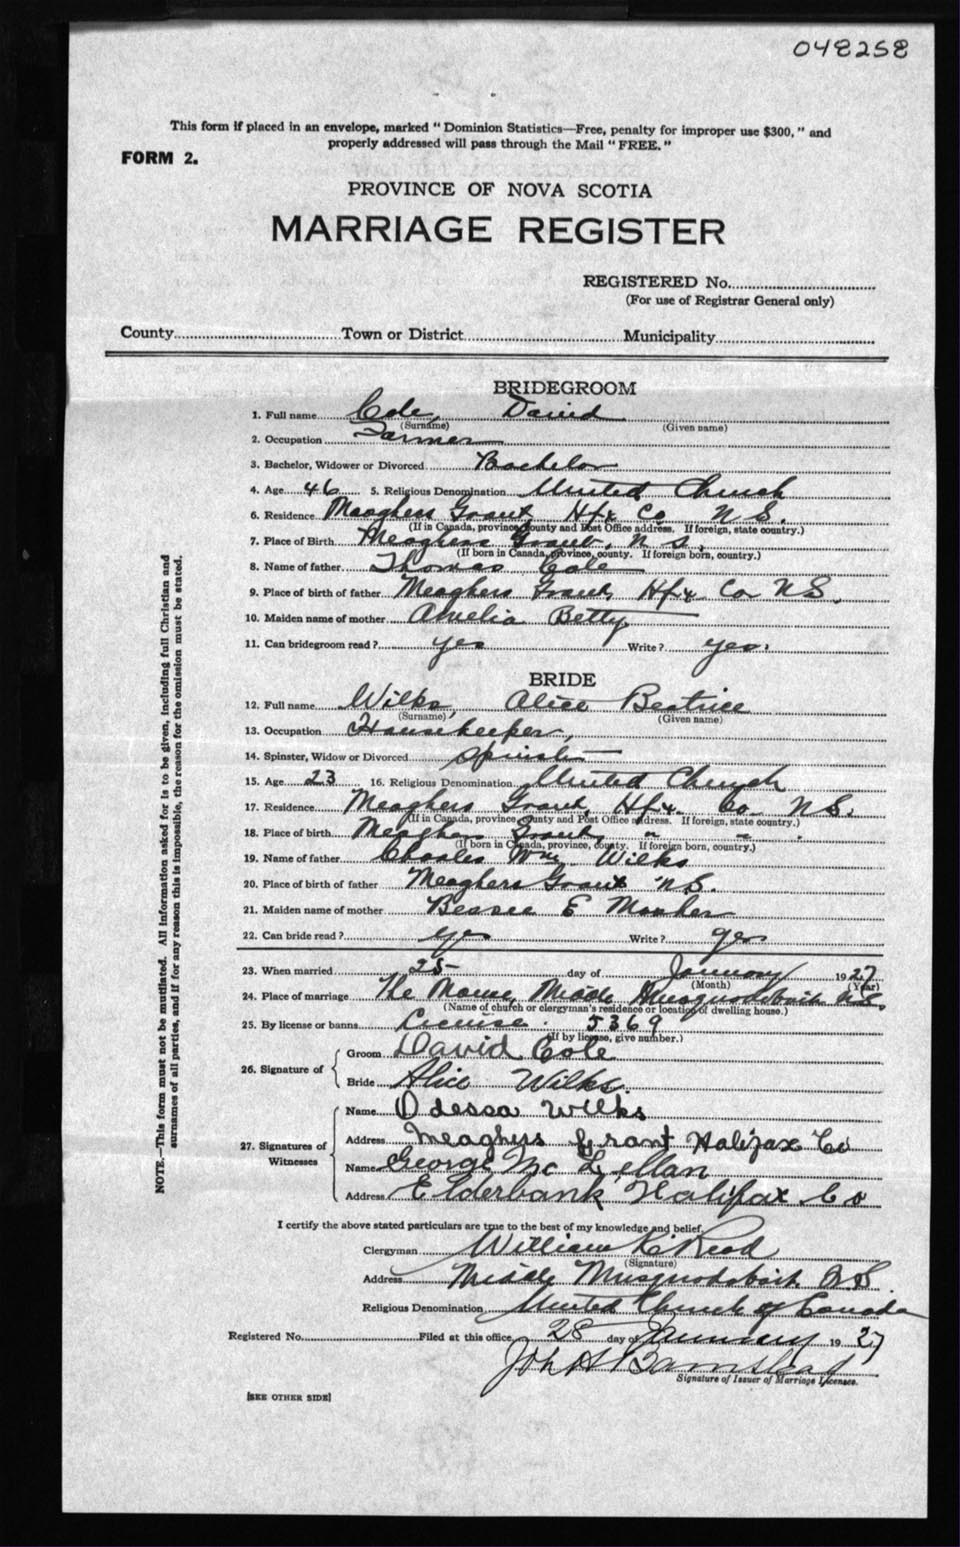 048258
This form if placed in an envelope, marked "Dominion Statistics—Free, penalty for improper use $300," and
properly addressed will pass through the Mail "FREE."
FORM 2.
PROVINCE OF NOVA SCOTIA
MARRIAGE REGISTER
REGISTERED No.
(For use of Registrar General only)
County Town or District Municipality
BRIDEGROOM
1. Full name Cole, David
(Surname) (Given name)
2. Occupation Farmer
3. Bachelor, Widower or Divorced Bachelor
4. Age 46 5. Religious Denomination United Church
6. Residence Meaghers Grant, Hfx Co N.S.
(If in Canada, province, county and Post Office address. If foreign, state country.)
7. Place of Birth Meaghers Grant, N.S.
(If born in Canada, province, county. If foreign born, country.)
8. Name of father Thomas Cole
9. Place of birth of father Meaghers Grant, Hfx Co N.S.
10. Maiden name of mother Amelia Betty
11. Can bridegroom read? yes Write? yes.
BRIDE
12. Full name Wilks, Alice Beatrice
(Surname) (Given name)
13. Occupation Housekeeper,
14. Spinster, Widow or Divorced Spinster
15. Age 23 16. Religious Denomination United Church
17. Residence Meaghers Grant, Hfx. Co. N.S.
(If in Canada, province, county and Post Office address. If foreign, state country.)
18. Place of birth Meaghers Grant, " " .
(If born in Canada, province, county. If foreign born, country.)
19. Name of father Charles Wm. Wilks
20. Place of birth of father Meaghers Grant N.S.
21. Maiden name of mother Bessie E Mosher
22. Can bride read? yes Write? yes
23. When married 25 day of January 1927
(Month) (Year)
24. Place of marriage The Manse, Middle Musquodoboit N.S.
(Name of church or clergyman's residence or location of dwelling house.)
25. By license or banns License. 5369
(If by license, give number.)
26. Signature of Groom David Cole
Bride Alice Wilks.
27. Signatures of Witnesses Name Odessa Wilks
Address Meaghers Grant Halifax Co
Name George McLellan
Address Elderbank, Halifax Co
I certify the above stated particulars are true to the best of my knowledge and belief.
Clergyman William K. Read
(Signature)
Address Middle Musquodoboit N.S.
Religious Denomination United Church of Canada
Registered No. Filed at this office, 28 day of January 1927
Signature of Issuer of Marriage Licenses.
[SEE OTHER SIDE]
NOTE.—This form must not be mutilated. All information asked for is to be given, including full Christian and
surnames of all parties, and if for any reason this is impossible, the reason for the omission must be stated.